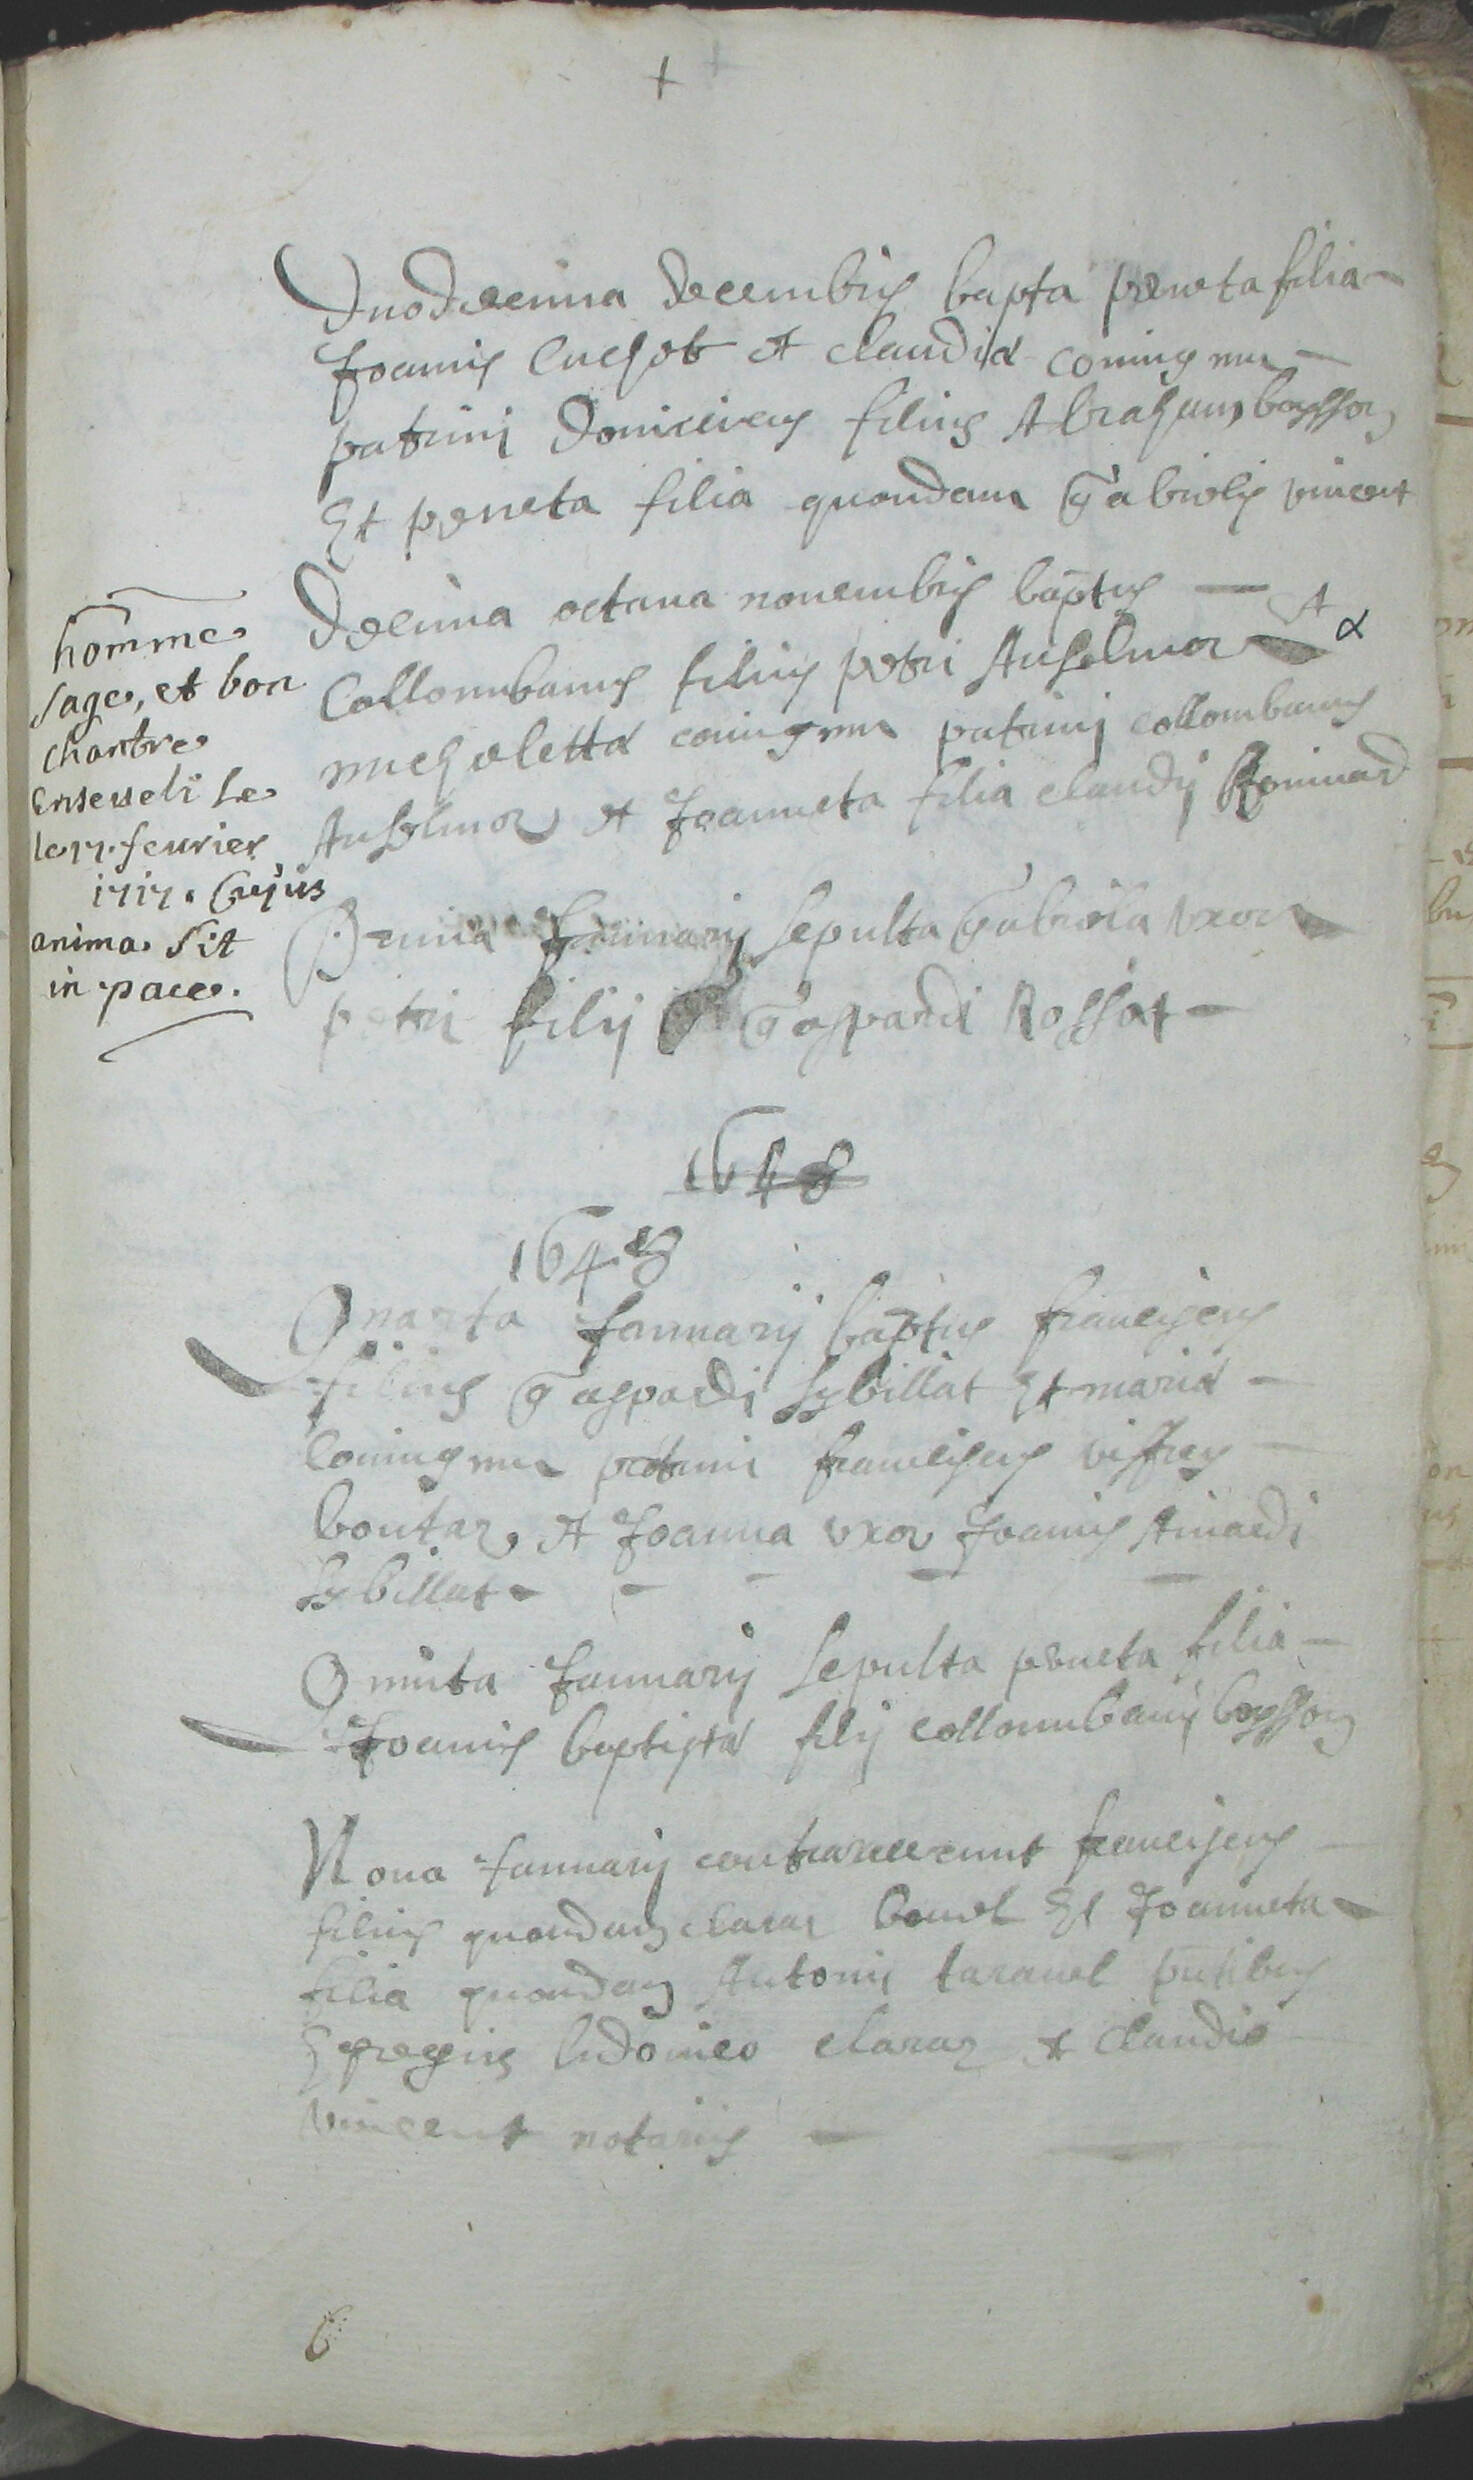 +
Duodecima decembris bapta perneta filia
Joannis cuchot et claudiæ coniugum
patrini dominicus filius Abraham boysson
Et perneta filia quondam Gabrielis vincent
Decima octaua nouembris baptus
Collombanus filius petri Anselmoz et
micholettæ coniugum patrini collombanus
Anselmoz et Joanneta filia claudij
homme
sage, et bon
chantre
enseueli Le
le 17. feurier
1717. Cujus
anima sit
in pace.
Prima Januarij sepulta Gabriela vxor
petri filij Gaspardi Rossat
1648
1648
Quarta Januarij baptus franciscus
filius Gaspardi sybillat Et mariæ
coniugum patrini franciscus viffrey
boutaz et Joanna vxor Joannis Amaedi
sybillat
Quinta Januarij sepulta perneta filia
Joannis baptistæ filij collombani boysson
Nona Januarij contraxerunt franciscus
filius quondam claraz bouet Et Joanneta
filia quondam Antonij tarauel pntibus
Egregiis ludouico claraz et claudio
vincent notariis